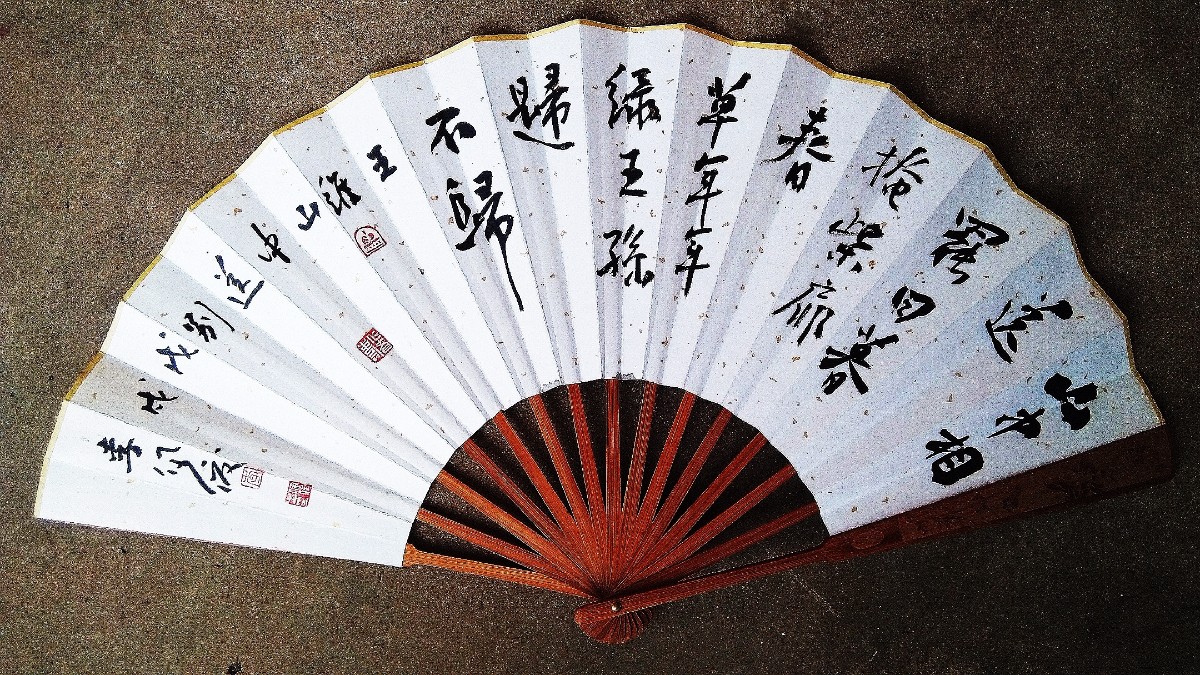 山中相
送
罷日暮
掩柴扉
春
草年年
綠王孫
歸
不歸
王
維
山
中
送
別
戊
戌